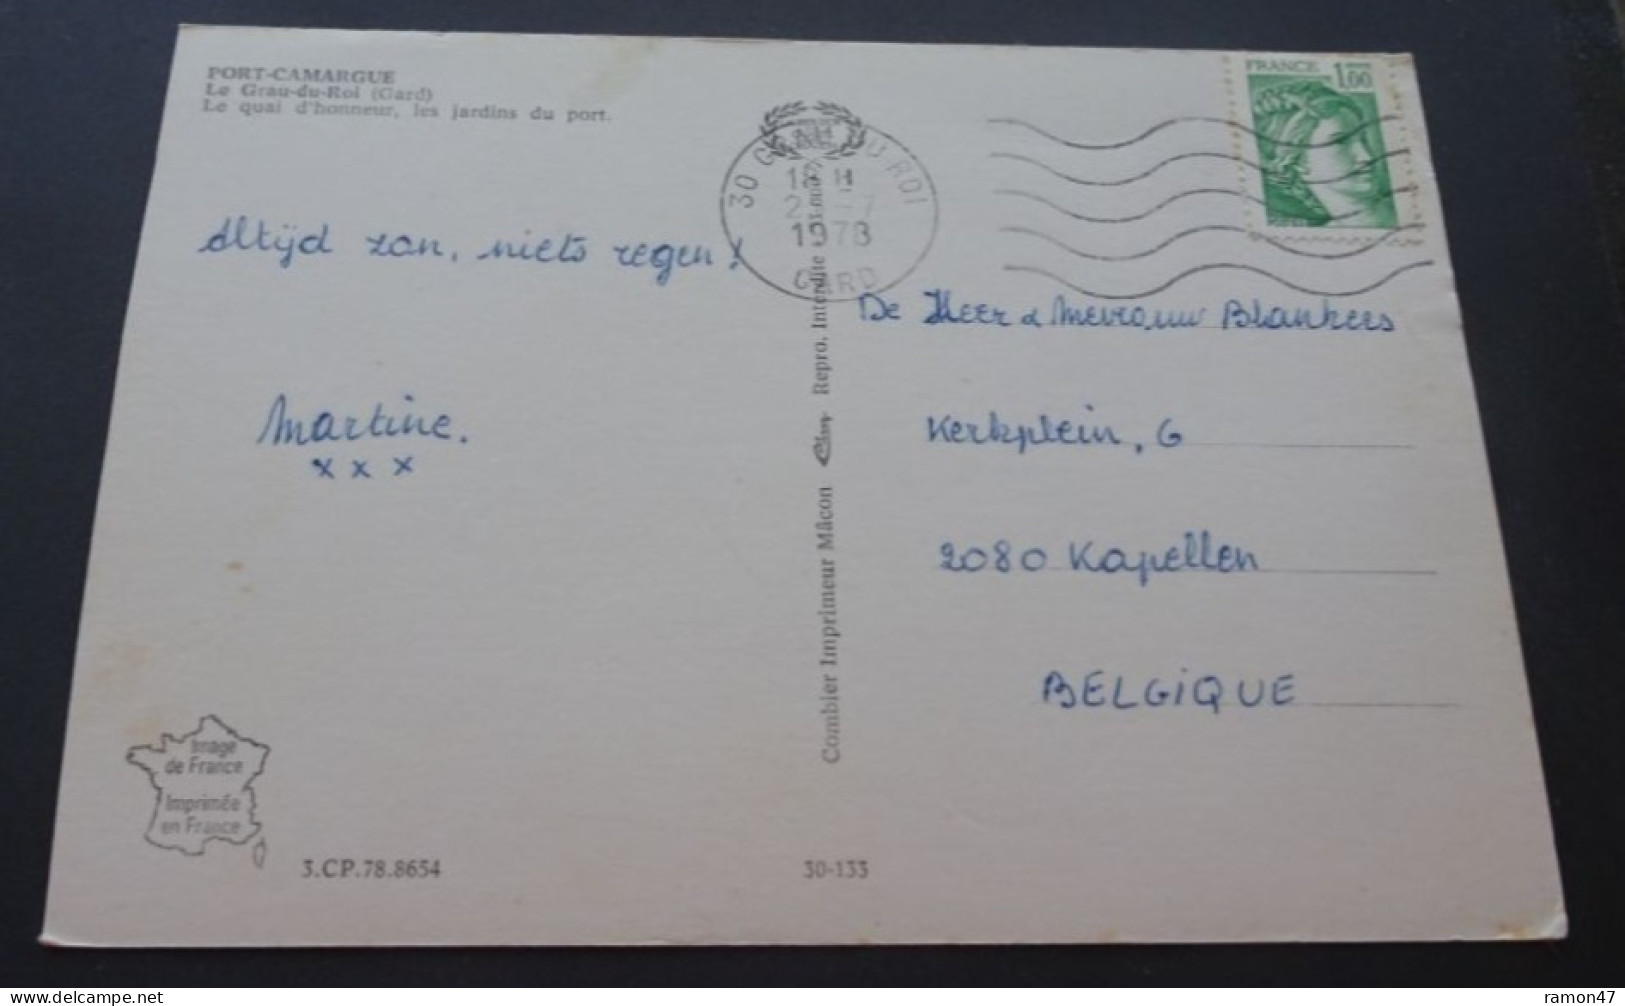 PORT-CAMARGUE
Le Grau-du-Roi (Gard)
Le quai d'honneur, les jardins du port.
FRANCE 1,00
30 G DU ROI
18 H
2 -7
1978
GARD
Altijd zon, niets regen!
Martine.
x x x
De Heer & Mevrouw Blankers
Kerkplein, 6
2080 Kapellen
BELGIQUE
Combier Imprimeur Mâcon Repro. Interdite
Image
de France
Imprimée
en France
3.CP.78.8654
30-133
ramon47